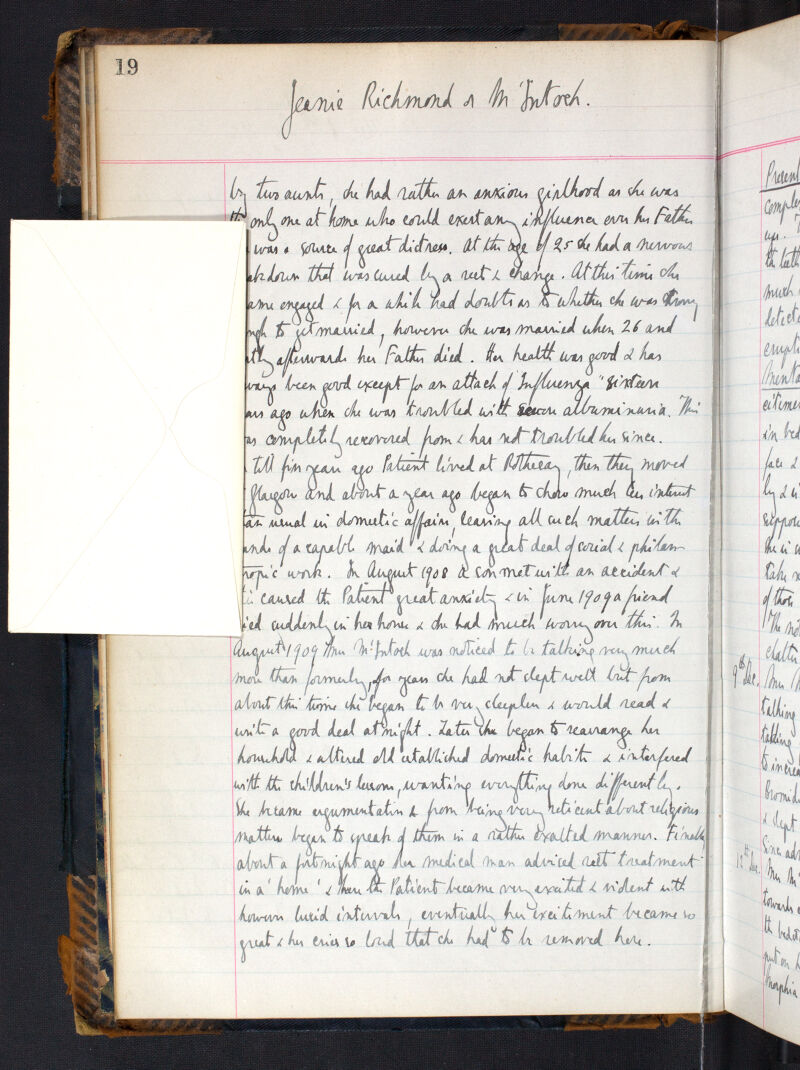 19
Jeanie Richmond or McIntosh.
by two aunts, she had rather an anxious girlhood as she was
only one at home who could exert any influence over her Father
was a source of great distress. At the age of 25 she had a nervous
akdown that was cured by a rest & change. At this time she
ame engaged & for a while had doubts as to whether she was strong
ugh to get married, however she was married when 26 and
tly afterwards her Father died. Her health was good & has
ways been good except for an attack of Influenza sixteen
ars ago when she was troubled with severe albuminuria. This
as completely recovered from & has not troubled her since.
till five years ago Patient lived at Rothesay, then they moved
Glasgow and about a year ago began to show much less interest
an usual in domestic affairs, leaving all such matters in the
ands of a capable maid & doing a great deal of social & philan
tropic work. In August 1908 a son met with an accident &
caused the Patient great anxiety & in June 1909 a friend
ied suddenly in her house & she had much worry over this. In
August 1909 Mrs McIntosh was noticed to be talking very much
more than formerly, for years she had not slept well but from
about this time she began to be very sleepless & would read &
write a good deal at night. Later she began to rearrange her
household & altered old established domestic habits & interfered
with the children's lessons, wanting everything done differently.
She became argumentative & from being very reticent about religious
matters began to speak of them in a rather exalted manner. Finally
about a fortnight ago her medical man advised rest treatment
in a 'home' & there the Patient became very excited & violent with
however lucid intervals, eventually her excitement became so
great & her cries so loud that she had to be removed here.
Present
comple
the teeth
much
detecte
erupti
Menta
citemen
in bed
face &
by & i
suppos
She is
take n
of thou
"The not
chatter
9th Dec. Mrs M
talking
talking
to increa
Bromide
& slept
since adm
12th Dec. Mrs M
towards
the bedst
put on
Morphia